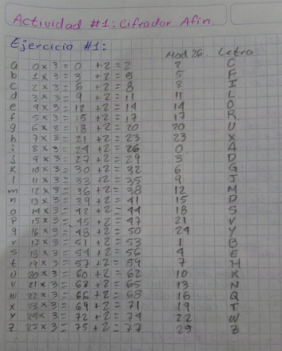 Actividad #1: Cifrador Afin.
Ejercicio #1:
Mod 26 Letra
a 0x3= 0 +2= 2 2 C
b 1x3= 3 +2= 5 5 F
c 2x3= 6 +2= 8 8 I
d 3x3= 9 +2= 11 11 L
e 4x3= 12 +2= 14 14 O
f 5x3= 15 +2= 17 17 R
g 6x3= 18 +2= 20 20 U
h 7x3= 21 +2= 23 23 X
i 8x3= 24 +2= 26 0 A
j 9x3= 27 +2= 29 3 D
K 10x3= 30 +2= 32 6 G
l 11x3= 33 +2= 35 9 J
m 12x3= 36 +2= 38 12 M
n 13x3= 39 +2= 41 15 D
14x3= 42 +2= 44 18 S
P 15x3= 45 +2= 47 21 V
q 16x3= 48 +2= 50 24 Y
r 17x3= 51 +2= 53 1 B
s 18x3= 54 +2= 56 4 E
t 19x3= 57 +2= 59 7 H
u 20x3= 60 +2= 62 10 K
v 21x3= 63 +2= 65 13 N
w 22x3= 66 +2= 68 16 Q
x 23x3= 69 +2= 71 19 T
y 24x3= 72 +2= 74 22 W
z 25x3= 75 +2= 77 25 Z